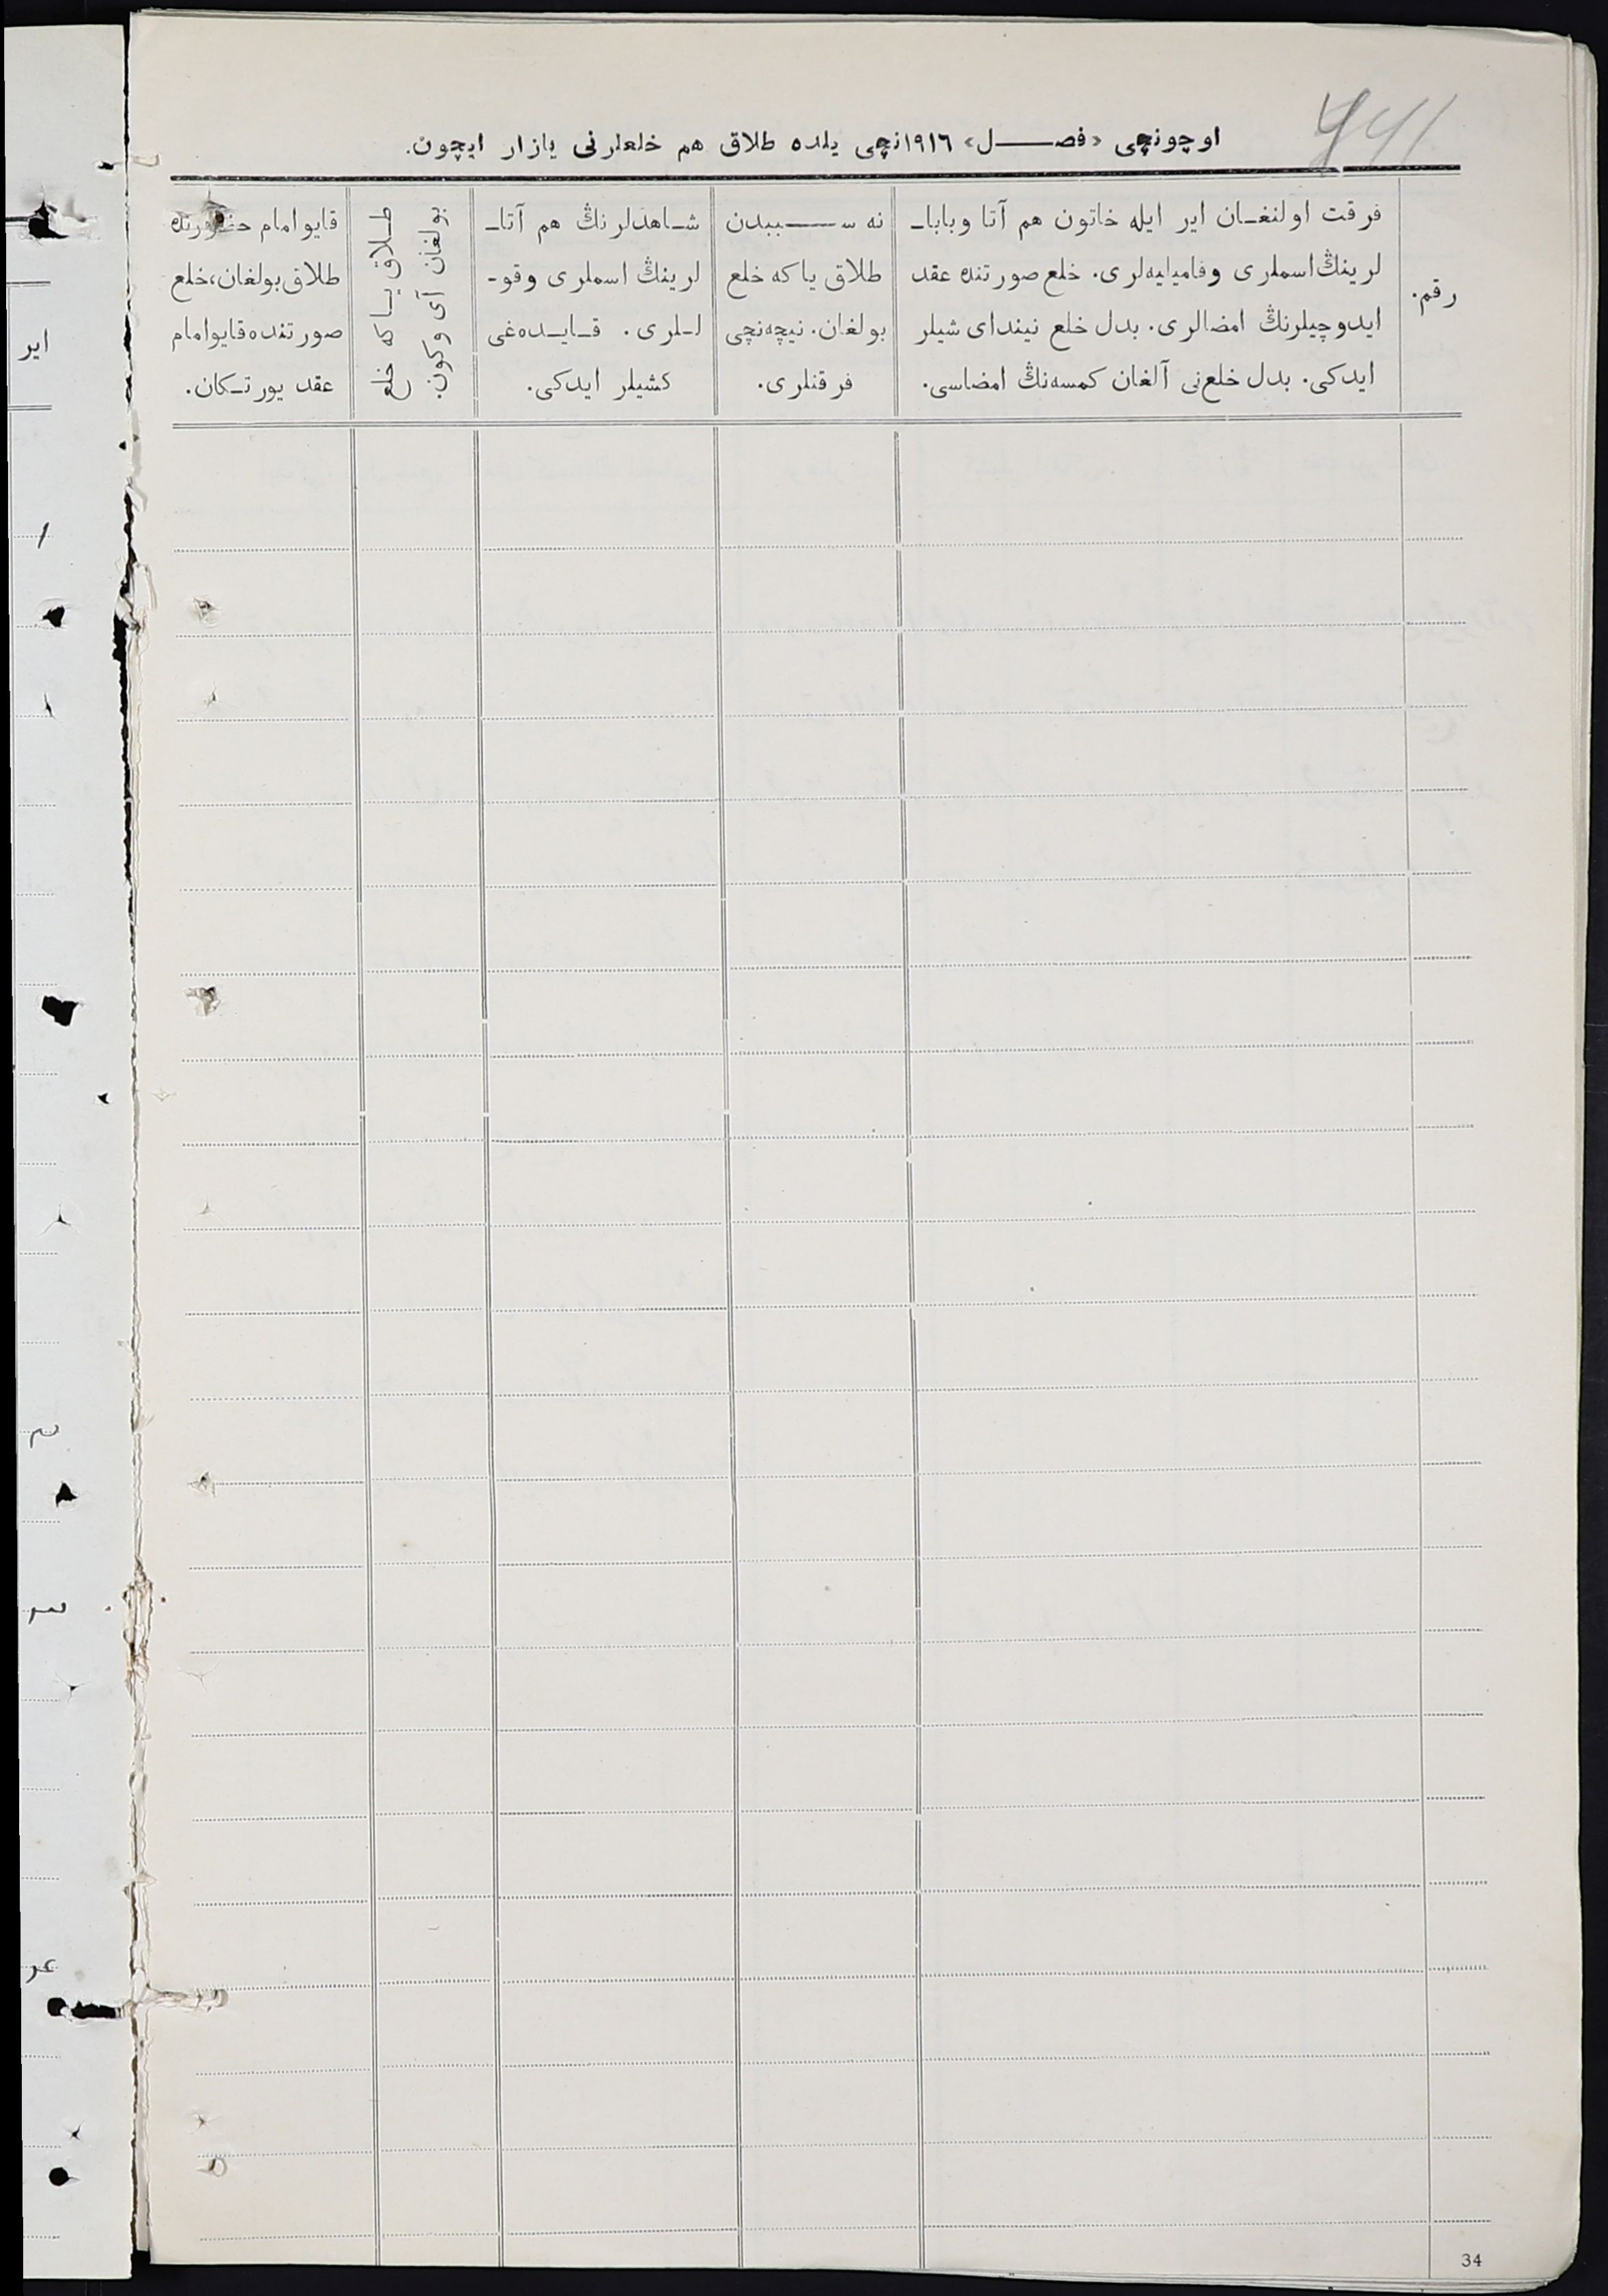 اوچونچی «فصل» ١٩١٦نچی یلده طلاق هم خلعلرنی یازار ایچون.
رقم.
فرقت اولنغان ایر ایله خاتون هم آتا وبابا‌ـ
لرینڭ اسملری وفامیلیه‌لری. خلع صورتنده عقد
ایدوچیلرنڭ امضالری. بدل خلع نیندای شیلر
ایدکی. بدل خلع‌نی آلغان کمسه‌نڭ امضاسی.
نه سببدن
طلاق یا که خلع
بولغان. نیچه‌نچی
فرقتلری.
شاهدلرنڭ هم آتا‌ـ
لرینڭ اسملری وقو‌ـ
لـلری. قایده‌غی
کشیلر ایدکی.
طلاق یا که خلع
بولغان آی وکون.
قایو امام حضورنده
طلاق بولغان، خلع
صورتنده قایو امام
عقد یورتکان.
ایر
34